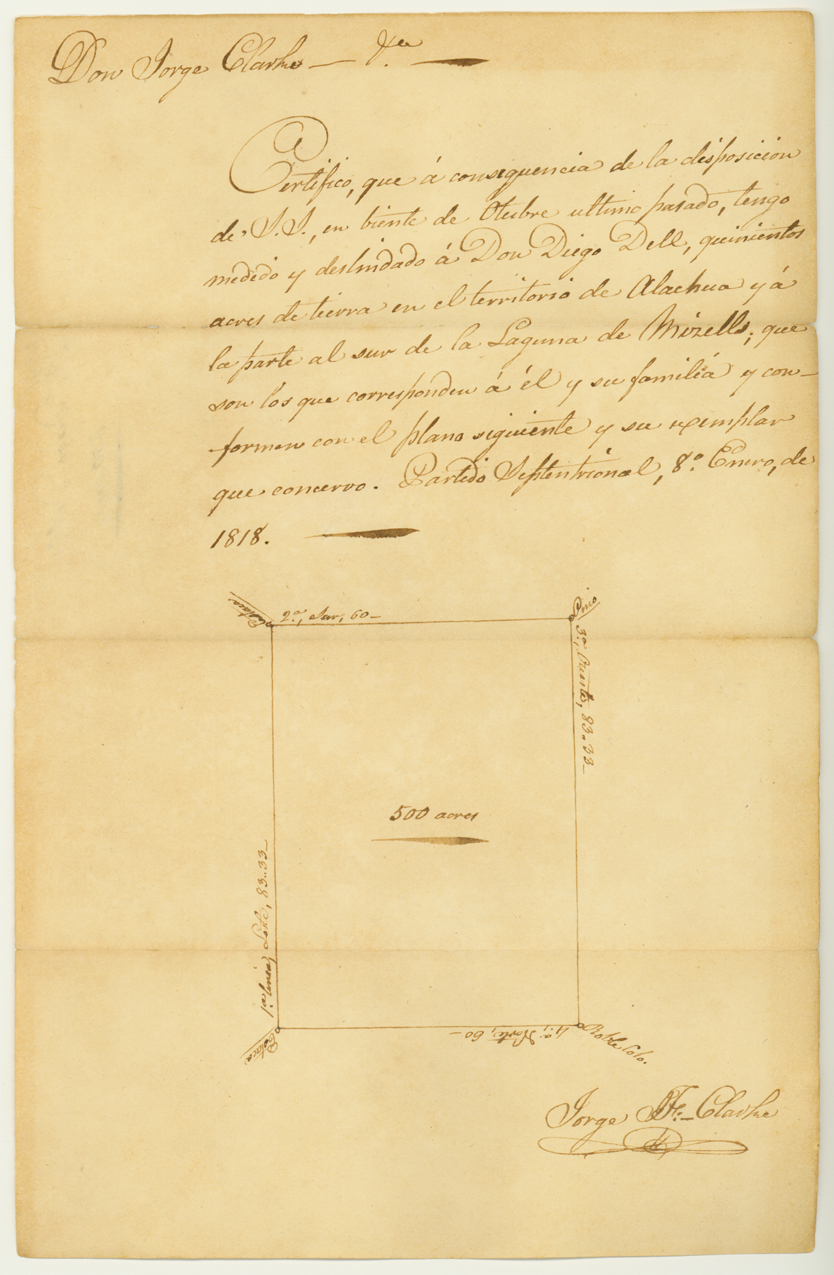 Don Jorge Clarke — &a. —
Certifico, que á conseguencia de la disposicion
de S.S., en biente de Otubre ultimo pasado, tengo
medido y deslindado á Don Diego Dell, quinientos
acres de tierra en el territorio de Alachua y á
la parte al sur de la Laguna de Mizells; que
son los que corresponden á él y su familia y con-
forman con el plano siguiente y su exemplar
que conservo. Partido Septentrional, 8º. Enero, de
1818.
2ª., Sur, 60—
Pino
3ª., Oueste, 83..33—
500 acres
1ª. linea, Leste, 83..33—
Estaca
4ª., Norte, 60—
Roble Colo.
Jorge J. F. Clarke